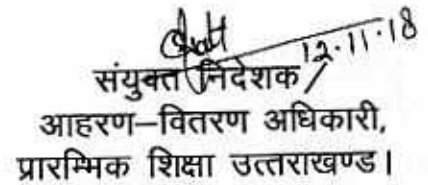 12.11.18
संयुक्त निदेशक /
आहरण–वितरण अधिकारी,
प्रारम्भिक शिक्षा उत्तराखण्ड।